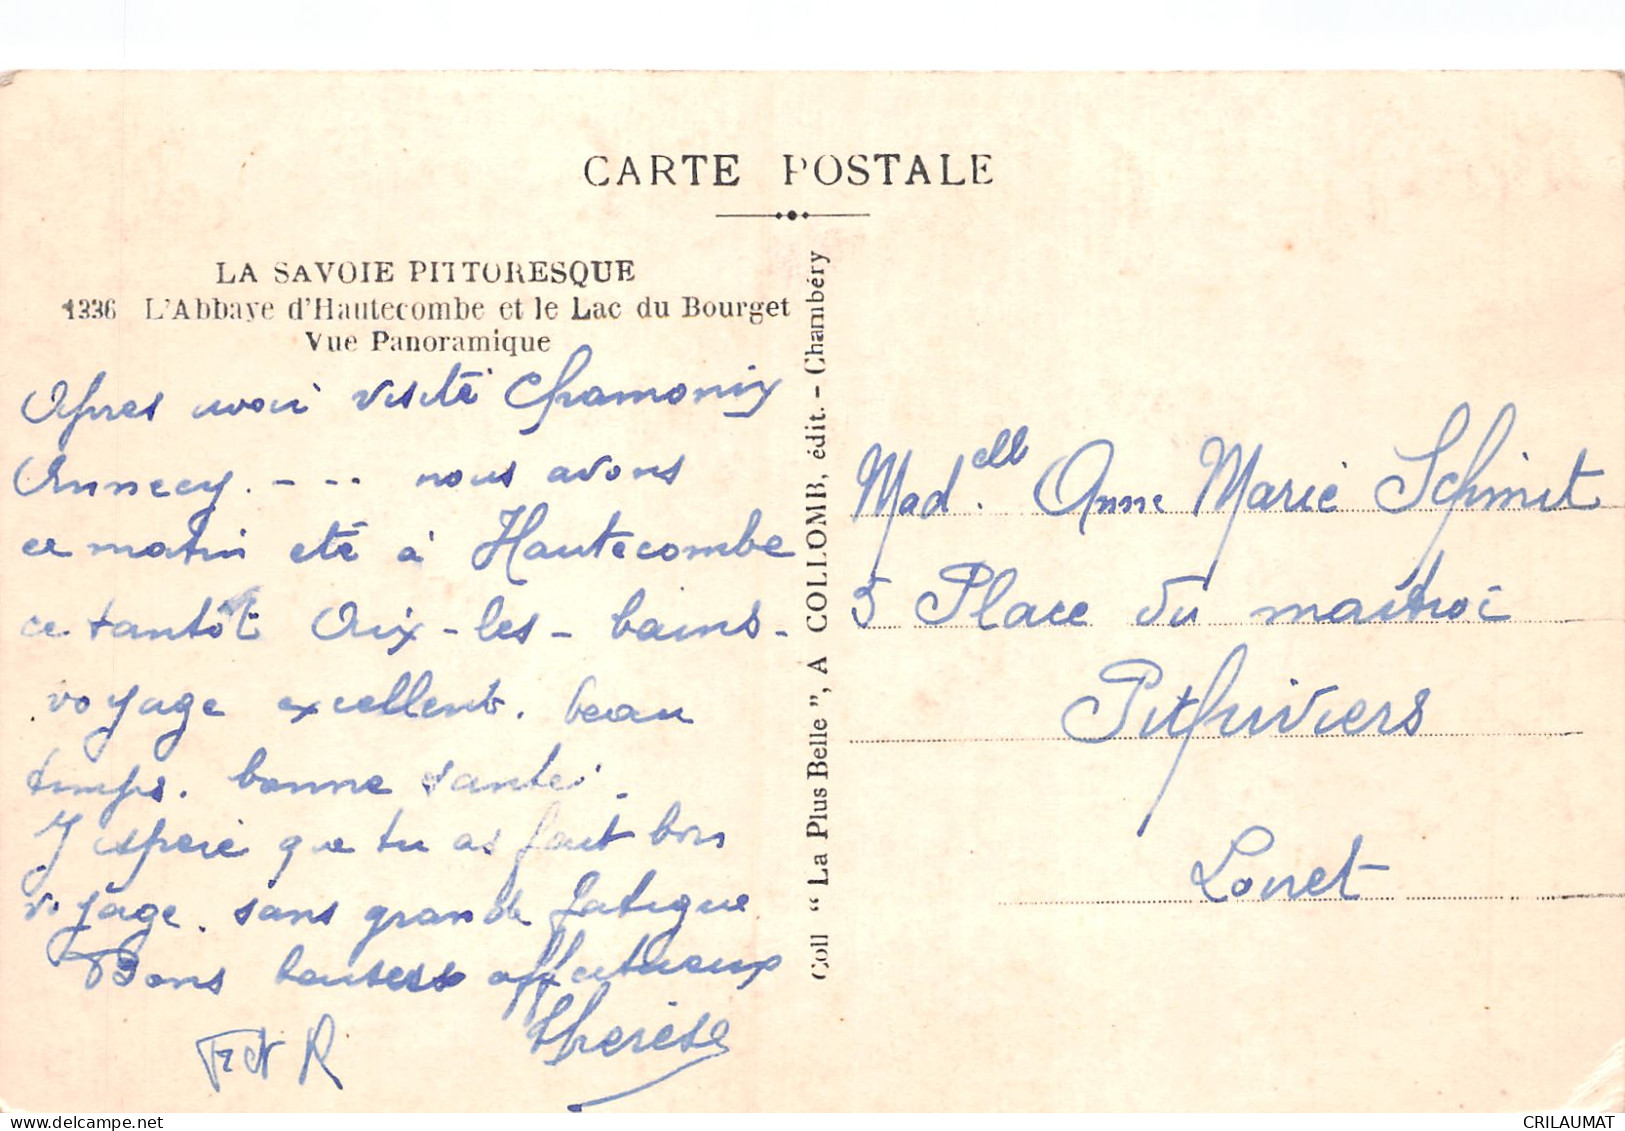 CARTE POSTALE
LA SAVOIE PITTORESQUE
1336 L'Abbaye d'Hautecombe et le Lac du Bourget
Vue Panoramique
Après avoir visité Chamonix
Annecy. - - - nous avons
ce matin été à Hautecombe
ce tantôt Aix-les-bains.
voyage excellent. beau
temps. bonne santé.
J'espère que tu as fait bon
voyage. sans grande fatigue
Bons baisers affectueux
Thérèse
F et R
Coll "La Plus Belle", A COLLOMB, édit. - Chambéry
Mad.elle Anne Marie Schmit
5 Place du martroi
Pithiviers
Loiret
CRILAUMAT